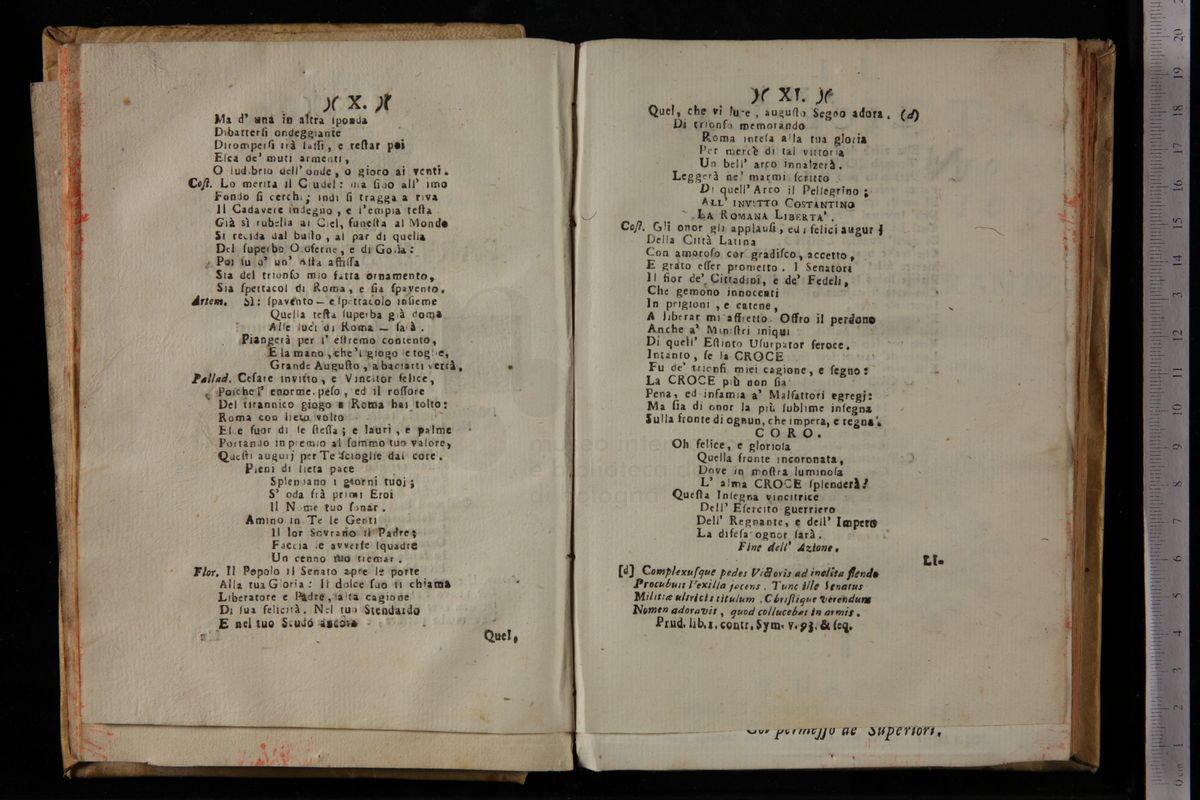 X.
Ma d' una in altra sponda
Dibattersi ondeggiante
Dirompersi trà sassi, e restar poi
Esca de' muti armenti,
O ludibrio dell' onde, o gioco ai venti.
Cost. Lo merita il Crudel: ma sino all' imo
Fondo si cerchi; indi si tragga a riva
Il Cadavere indegno, e l'empia testa
Già sì rubella al Ciel, funesta al Mondo
Si recida dal busto, al par di quella
Del superbo Oloferne, e di Golia:
Poi su d' un' Asta affissa
Sia del trionfo mio fatta ornamento,
Sia spettacol di Roma, e sia spavento.
Artem. Sì: spavento — e spettacolo insieme
Quella testa superba già doma
Alle luci di Roma — sarà.
Piangerà per l' estremo contento,
E la mano, che 'l giogo le toglie,
Grande Augusto, a baciarti verrà.
Pallad. Cesare invitto, e Vincitor felice,
Poiche l' enorme peso, ed il rossore
Del tirannico giogo a Roma hai tolto:
Roma con lieto volto
Esce fuor di se stessa; e lauri, e palme
Portando in premio al sommo tuo valore,
Questi augurj per Te scioglie dal core.
Pieni di lieta pace
Splendano i giorni tuoi;
S' oda frà primi Eroi
Il Nome tuo sonar.
Amino in Te le Genti
Il lor Sovrano il Padre;
Faccia le avverse squadre
Un cenno tuo tremar.
Flor. Il Popolo il Senato apre le porte
Alla tua Gloria: Il dolce suo ti chiama
Liberatore e Padre, alta cagione
Di sua felicità. Nel tuo Stendardo
E nel tuo Scudo ancora
Quel,
XI.
Quel, che vi luce, augusto Segno adora. (d)
Di trionfo memorando
Roma intesa alla tua gloria
Per mercè di tal vittoria
Un bell' arco innalzerà.
Leggerà ne' marmi scritto
Di quell' Arco il Pellegrino;
ALL' INVITTO COSTANTINO
LA ROMANA LIBERTA'.
Cost. Gli onor gli applausi, ed i felici augurj
Della Città Latina
Con amoroso cor gradisco, accetto,
E grato esser prometto. I Senatori
Il fior de' Cittadini, e de' Fedeli,
Che gemono innocenti
In prigioni, e catene,
A liberar mi affretto. Offro il perdono
Anche a' Ministri iniqui
Di quell' Estinto Usurpator feroce.
Intanto, se la CROCE
Fu de' trionfi miei cagione, e segno:
La CROCE più non sia
Pena, ed infamia a' Malfattori egregj:
Ma sia di onor la più sublime insegna
Sulla fronte di ognun, che impera, e regna.
CORO.
Oh felice, e gloriosa
Quella fronte incoronata,
Dove in mostra luminosa
L' alma CROCE splenderà!
Questa Insegna vincitrice
Dell' Esercito guerriero
Dell' Regnante, e dell' Impero
La difesa ognor sarà.
Fine dell' Azione.
LI-
[d] Complexusque pedes Victoris ad inclita flendo
Procubuit Vexilla jacens. Tunc ille Senatus
Militiæ ultricis titulum. Christique verendum
Nomen adoravit, quod collucebat in armis.
Prud. lib. 1. contr. Sym. v. 93. & seq.
Con permesso de Superiori.